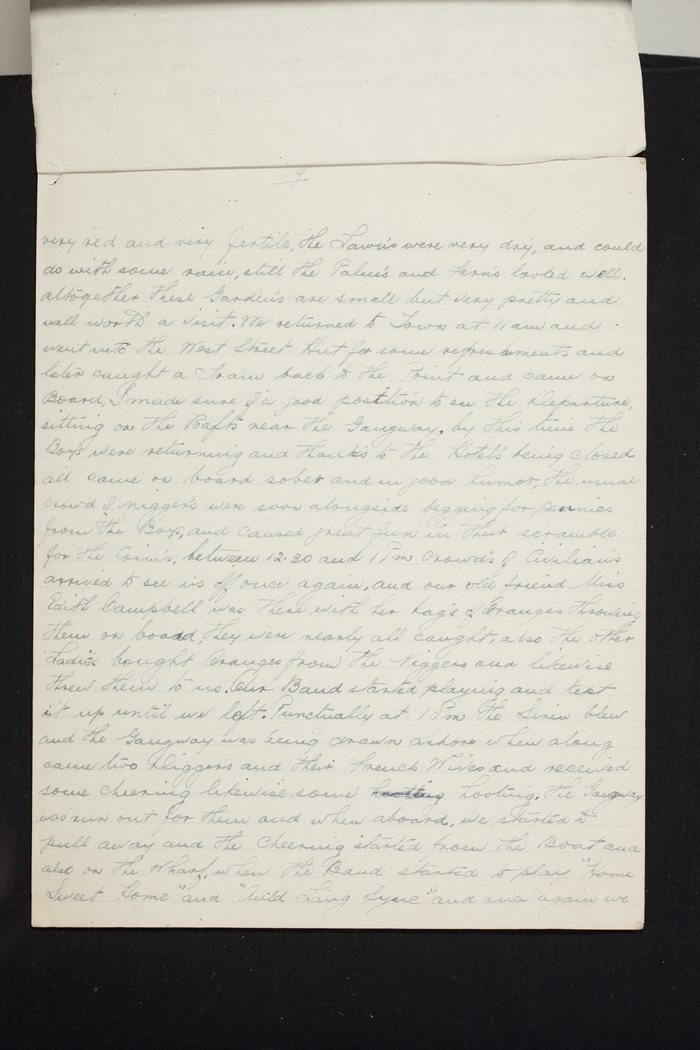 19
very red. and very fertile, the Lawn's were very dry, and could
do with some rain, still the Palm's and fern's looked well.
altogether these Garden's are small but very pretty and
well worth a visit. We returned to Town at 11 am and
went into the West Street Hut for some refreshments and
later caught a Tram back to the Point and came on
Board, I made sure of a good position to see the Departure,
sitting on the Rafts near the Gangway. by this time the
Boys were returning and thank's to the Hotel's being closed
all came on board sober and in good humor, the usual
crowd of nigger's were soon alongside begging for pennies
from the Boys, and caused great fun in their scramble
for the Coins, between 12.30 and 1 Pm Crowd's of Civilian's
arrived to see us off once again, and our old friend Miss
Edith Campbell was there with her bag's of Oranges throwing
them on board, they were nearly all caught, also the other
Ladies bought Oranges from the Niggers and likewise
threw them to us. Our Band started playing and kept
it up until we left. Punctually at 1 Pm the Siren blew
and the Gangway was being drawn ashore when along
came two Diggers and their French Wives and received
some cheering likewise some hooting hooting. the Gangway
was run out for them and when aboard, we started to
pull away and the Cheering started from the Boat and
also on the Wharf, when the Band started to play "Home
Sweet Home" and "Auld Lang Syne" and once again we